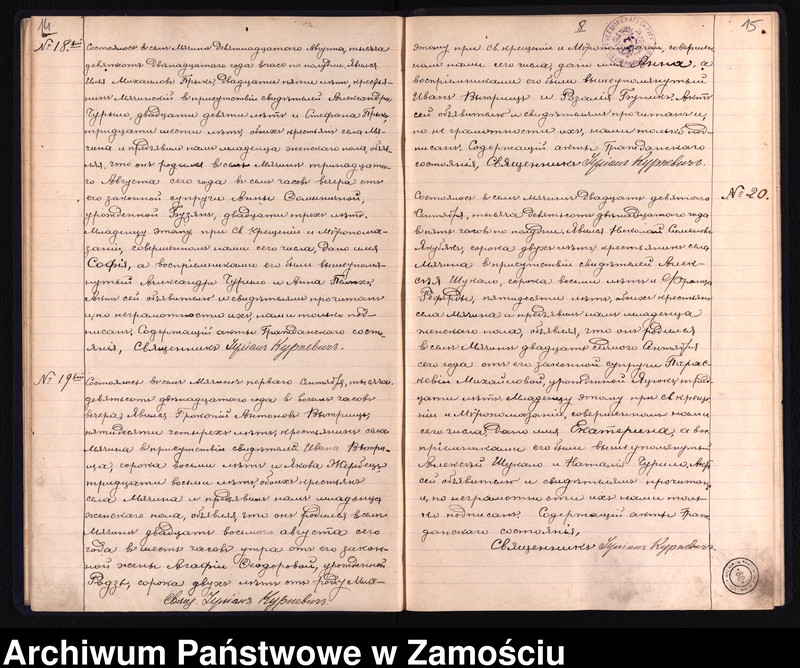 14
№ 18.
Состоялось въ селѣ Мячинѣ Девятнадцатаго Августа, тысяча
девятьсотъ двѣнадцатого года въ часъ по полудни, Явился
Илья Михаиловъ Двадцати пяти лѣтъ, кресть-
янинъ Мячинскій въ присутствіи свидѣтелей Александра
Чурило, двадцати девяти лѣтъ и Стефана
тридцати шести лѣтъ, обоихъ крестьянъ села Мя-
чина и предъявилъ намъ младенца женскаго пола, объя-
вляя, что онъ родился въ селѣ Мячинѣ тринадцата-
го Августа сего года въ семь часовъ вечера отъ
его законной супруги Анны
урожденной двадцати трехъ лѣтъ.
Младенцу этому при св крещеніи и Мѵропома-
заніи, совершенномъ нами сего числа, Дано имя
Софія, а воспріемниками его были вышеупомя-
нутый Александръ Чурило и Анна
Актъ сей объявителю и свидѣтелямъ прочитанъ
и, по неграмотности ихъ, нами только под-
писанъ. Содержащій акты Гражданскаго состо-
янія, Священникъ Іуліанъ Куркевичъ.
№ 19
Состоялось въ селѣ Мячинѣ перваго Сентября, тысяча
девятьсотъ двѣнадцатого года въ восемь часовъ
вечера, Явился Прокопій Антоновъ Вытрищъ,
пятидесяти четырехъ лѣтъ, крестьянинъ села
Мячина въ присутствіи свидѣтелей Ивана Вытри-
ща, сорока восьми лѣтъ и Якова Жеребецъ
тридцати восьми лѣтъ, обоихъ крестьянъ
села Мячина и предъявилъ намъ младенца
женскаго пола, объявляя, что онъ родился въ селѣ
Мячинѣ двадцать восьмого августа сего
года въ шесть часовъ утра отъ его закон-
ной жены Агафіи Ѳеодоровой, урожденной
сорока двухъ лѣтъ отъ роду Мла-
Свящ. Іуліанъ Куркевичъ
15.
денцу этому при св крещеніи и Мѵропомазаніи, совершен-
номъ нами сего числа, дано имя Анна, а
воспріемниками его были вышеупомянутый
Иванъ Вытрищъ и Розалія Актъ
сей объявителю и свидѣтелямъ прочитанъ и,
по неграмотности ихъ, нами только под-
писанъ. Содержащій акты Гражданскаго
состоянія, Священникъ Іуліанъ Куркевичъ.
№ 20.
Состоялось въ селѣ Мячинѣ Двадцать девятаго
Сентября, тысяча Девятьсотъ двѣнадцатого года
въ пять часовъ по полудни, Явился Николай Семеновъ
сорока двухъ лѣтъ крестьянинъ села
Мячина въ присутствіи свидѣтелей Алек-
сѣя Шукало, сорока восьми лѣтъ и Франца
пятидесяти лѣтъ, обоихъ крестьянъ
села Мячина и предъявилъ намъ младенца
женскаго пола, объявляя, что онъ родился
въ селѣ Мячинѣ двадцать седьмого Сентября
сего года отъ его законной супруги Парас-
кевіи Михайловой, урожденной Яцукъ, трид-
цати лѣтъ. Младенцу этому при св креще-
ніи и Мѵропомазаніи, совершенномъ нами
сего числа, Дано имя Екатерина, а вос-
пріемниками его были вышеупомянутый
Алексѣй Шукало и Наталія Чурило. Актъ
сей объявителю и свидѣтелямъ прочитанъ
и, по неграмотности ихъ нами толь-
ко подписанъ. Содержащій акты Граж-
данскаго состоянія,
Священникъ Іуліанъ Куркевичъ.
Archiwum Państwowe w Zamościu